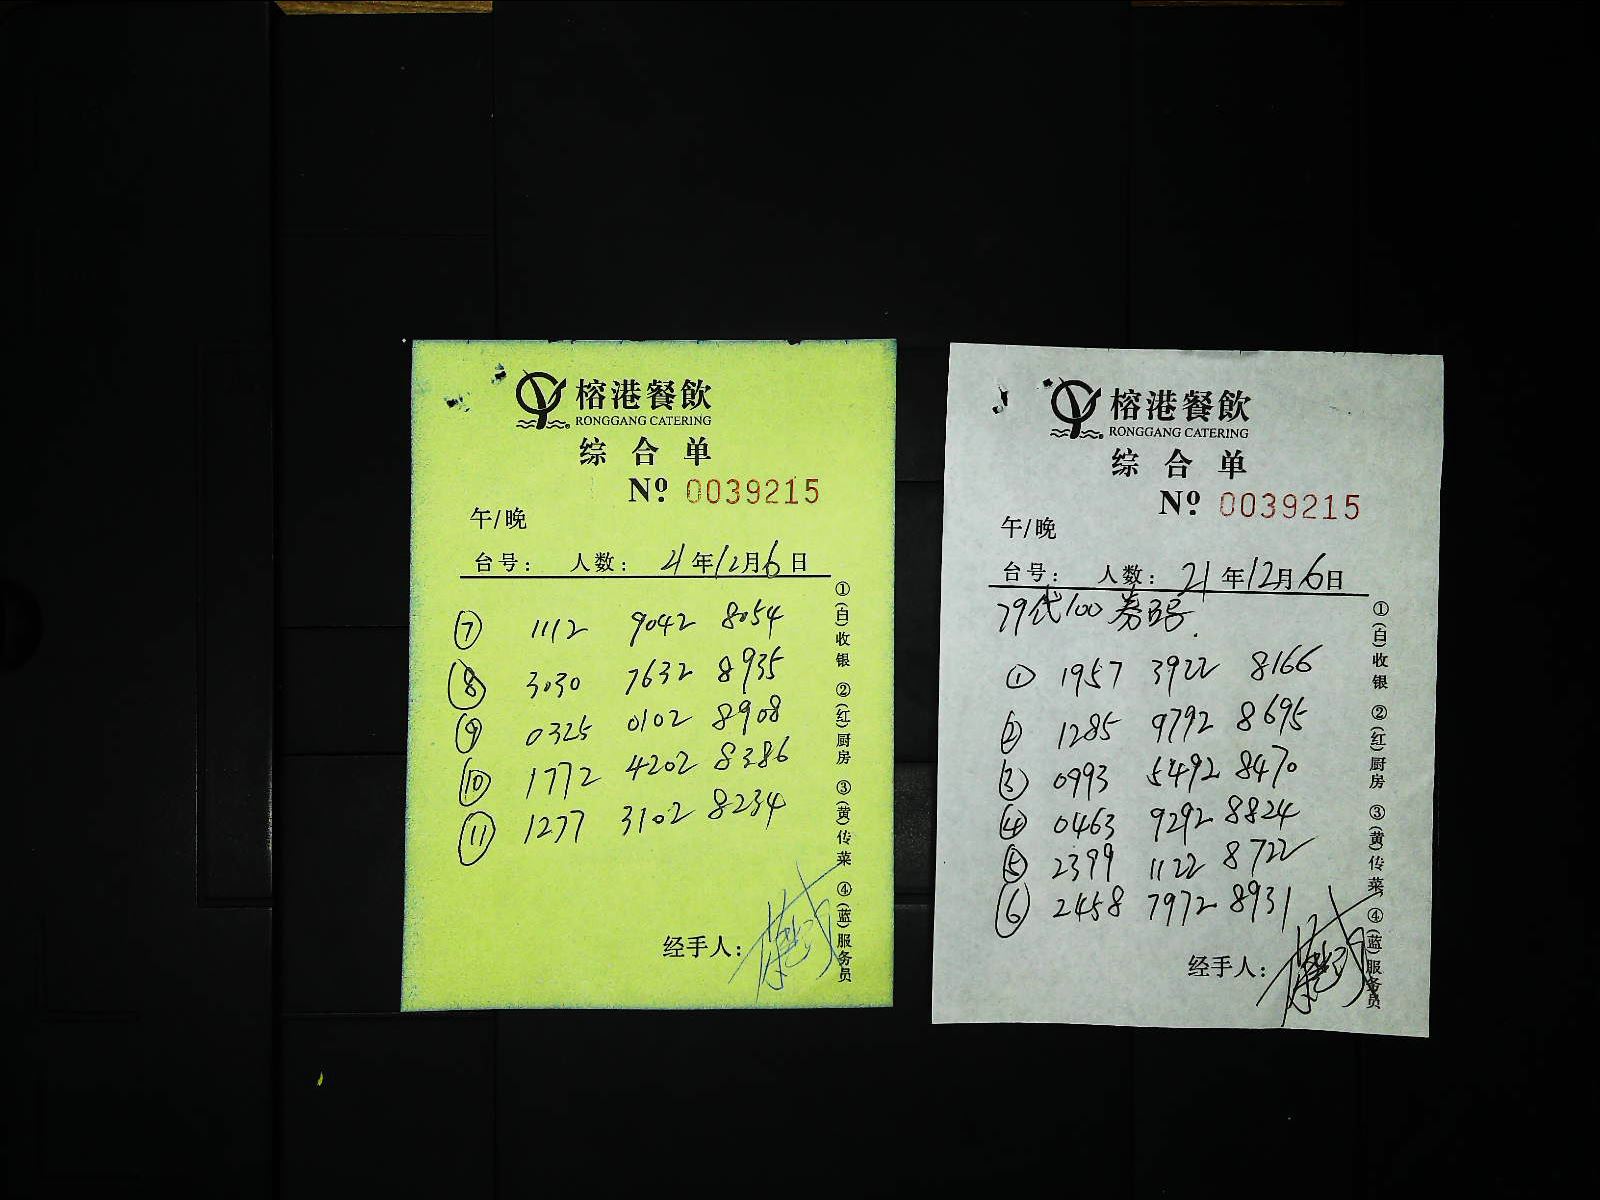 榕港餐飲
RONGGANG CATERING
综合单
Nº 0039215
午/晚
台号: 人数: 21年12月6日
⑦ 1112 9042 8054
⑧ 3030 7632 8935
⑨ 0325 0102 8908
⑩ 1772 4202 8386
⑪ 1277 3102 8234
经手人:
①(白)收银 ②(红)厨房 ③(黄)传菜 ④(蓝)服务员
榕港餐飲
RONGGANG CATERING
综合单
Nº 0039215
午/晚
台号: 人数: 21年12月6日
79代100券号
① 1957 3922 8166
② 1285 9792 8695
③ 0993 5492 8470
④ 0463 9292 8824
⑤ 2399 1122 8722
⑥ 2458 7972 8931
经手人:
①(白)收银 ②(红)厨房 ③(黄)传菜 ④(蓝)服务员